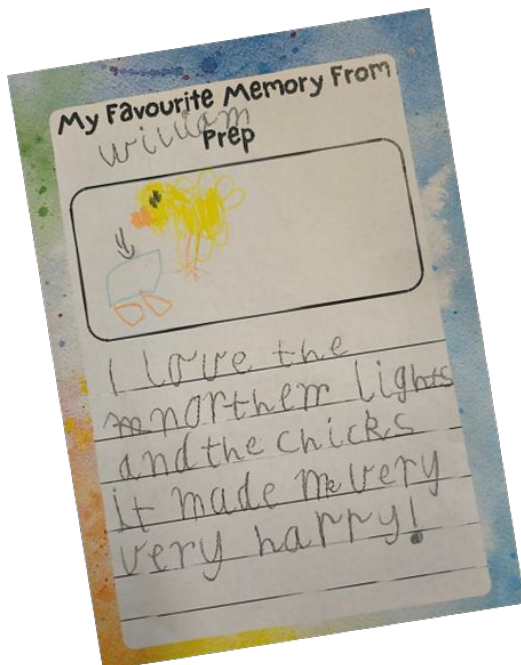 My Favourite Memory From
Prep
William
I love the
mnorthern lights
and the chicks
it made me very
very happy!